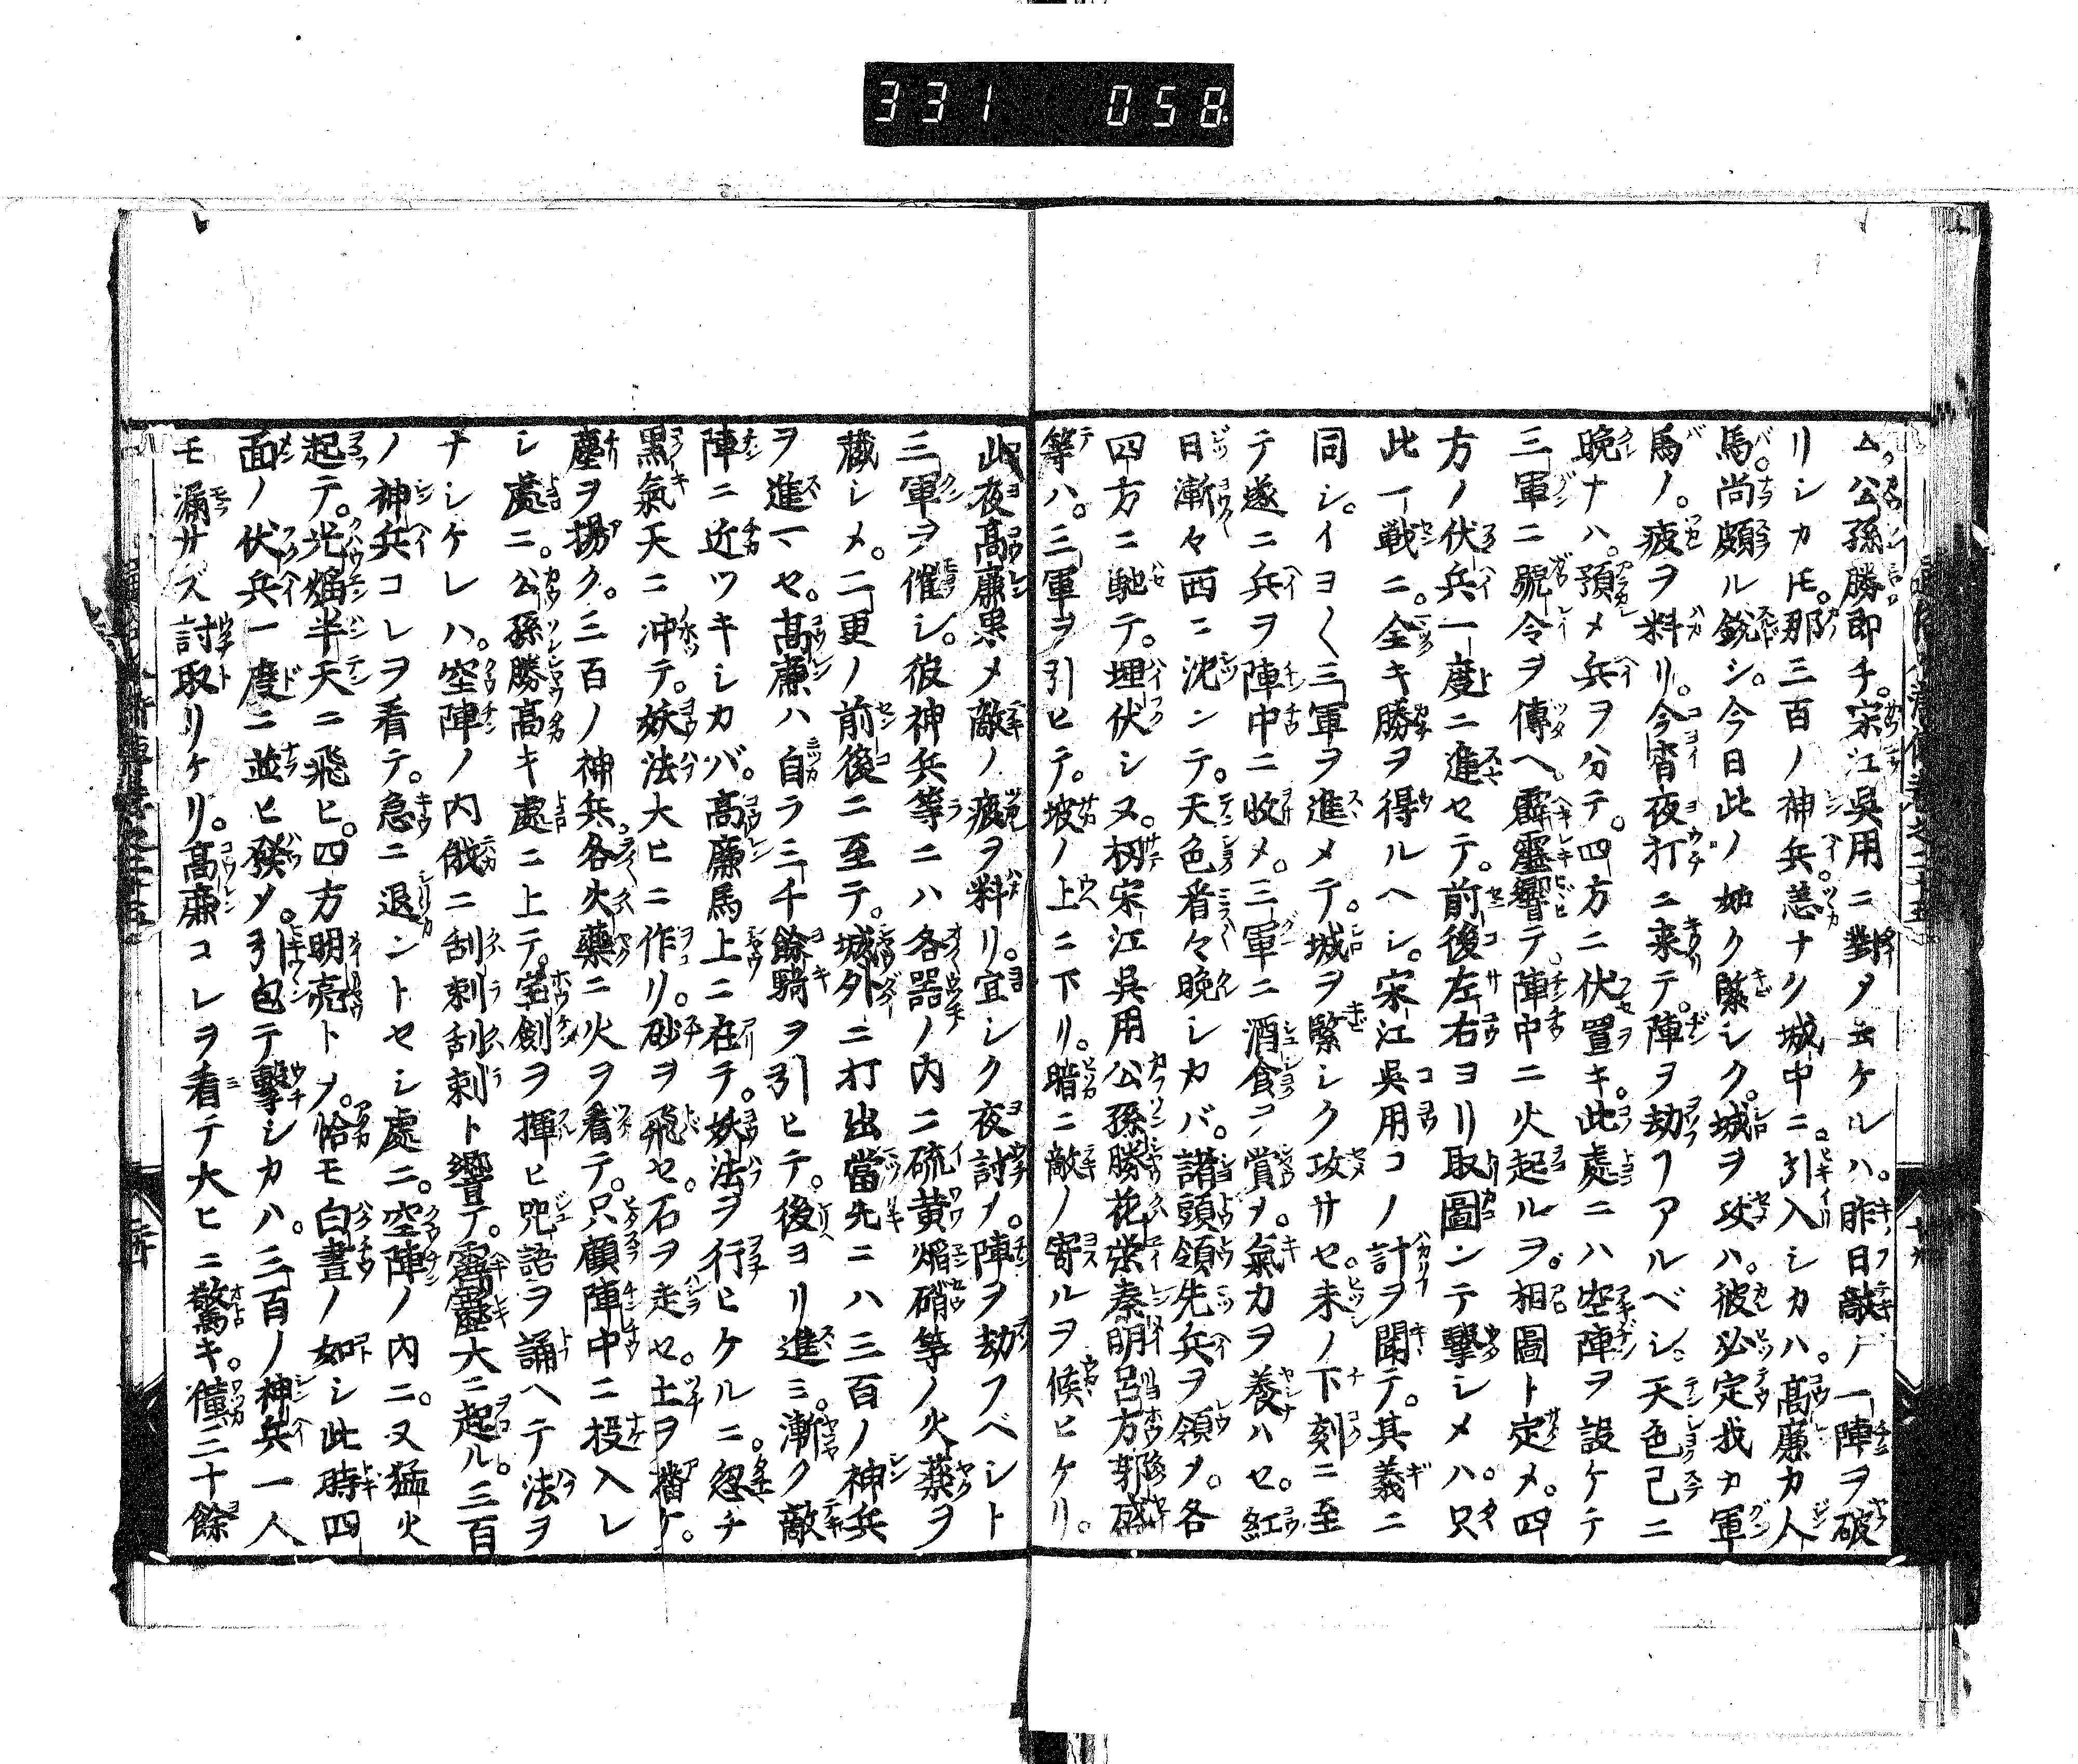 331 058
ム。公孫勝即チ。宋江呉用ニ對メ云ケルハ。昨日敵ノ一陣ヲ破
リシカ𪜈。那三百ノ神兵恙ナク城中ニ引入シカハ。高廉カ人
馬。尚頗ル鋭シ。今日此ノ如ク緊シク。城ヲ攻ハ。彼必定我カ軍
馬ノ。疲ヲ料リ。今宵夜打ニ来テ。陣ヲ劫フアルベシ。天色已ニ
晩ナハ。預メ兵ヲ分テ。四方ニ伏置キ。此處ニハ空陣ヲ設ケテ
三軍ニ號令ヲ傳ヘ。霹靂響テ。陣中ニ火起ルヲ。相圖ト定メ。四
方ノ伏兵一度ニ進セテ。前後左右ヨリ取圍ンテ撃シメハ。只
此一戦ニ。全キ勝ヲ得ルヘシ。宋江呉用コノ計ヲ聞テ。其義ニ
同シ。イヨ〱三軍ヲ進メテ。城ヲ緊シク攻サセ。未ノ下刻ニ至
テ遂ニ兵ヲ陣中ニ收メ。三軍ニ酒食ヲ賞メ。氣力ヲ養ハセ。紅
日漸々西ニ沈ンテ。天色看々晩シカバ。諸頭領先兵ヲ領メ。各
四方ニ馳テ。埋伏シヌ。扨宋江呉用公孫勝花栄秦明呂方郭盛
等ハ。三軍ヲ引ヒテ。坡ノ上ニ下リ。暗ニ敵ノ寄ルヲ候ヒケリ。
此夜高廉果メ敵ノ疲ヲ料リ。宜シク夜討メ。陣ヲ劫フベシト
三軍ヲ催シ。彼神兵等ニハ各器ノ内ニ硫黄焔硝等ノ火藥ヲ
藏シメ。二更ノ前後ニ至テ。城外ニ打出當先ニハ三百ノ神兵
ヲ進マセ。高廉ハ自ラ三千餘騎ヲ引ヒテ。後ヨリ進ミ。漸ク敵
陣ニ近ツキシカバ。高廉馬上ニ在テ。妖法ヲ行ヒケルニ。忽チ
黒氣天ニ冲テ。妖法大ヒニ作リ。砂ヲ飛セ。石ヲ走セ。土ヲ播ケ。
塵ヲ揚ク。三百ノ神兵。各火藥ニ火ヲ着テ。只顧陣中ニ投入レ
シ處ニ。公孫勝高キ處ニ上テ。宝劍ヲ揮ヒ咒語ヲ誦ヘテ法ヲ
ナシケレハ。空陣ノ内俄ニ刮剌刮剌ト響テ。霹靂大ニ起ル。三百
ノ神兵コレヲ看テ。急ニ退ントセシ處ニ。空陣ノ内ニ。又猛火
起テ。光焔半天ニ飛ヒ。四方明亮トメ。恰モ白晝ノ如シ此時四
面ノ伏兵一度ニ並ヒ發メ。引包テ撃シカハ。三百ノ神兵一人
モ漏サズ討取リケリ。高廉コレヲ看テ大ヒニ驚キ。僅三十餘